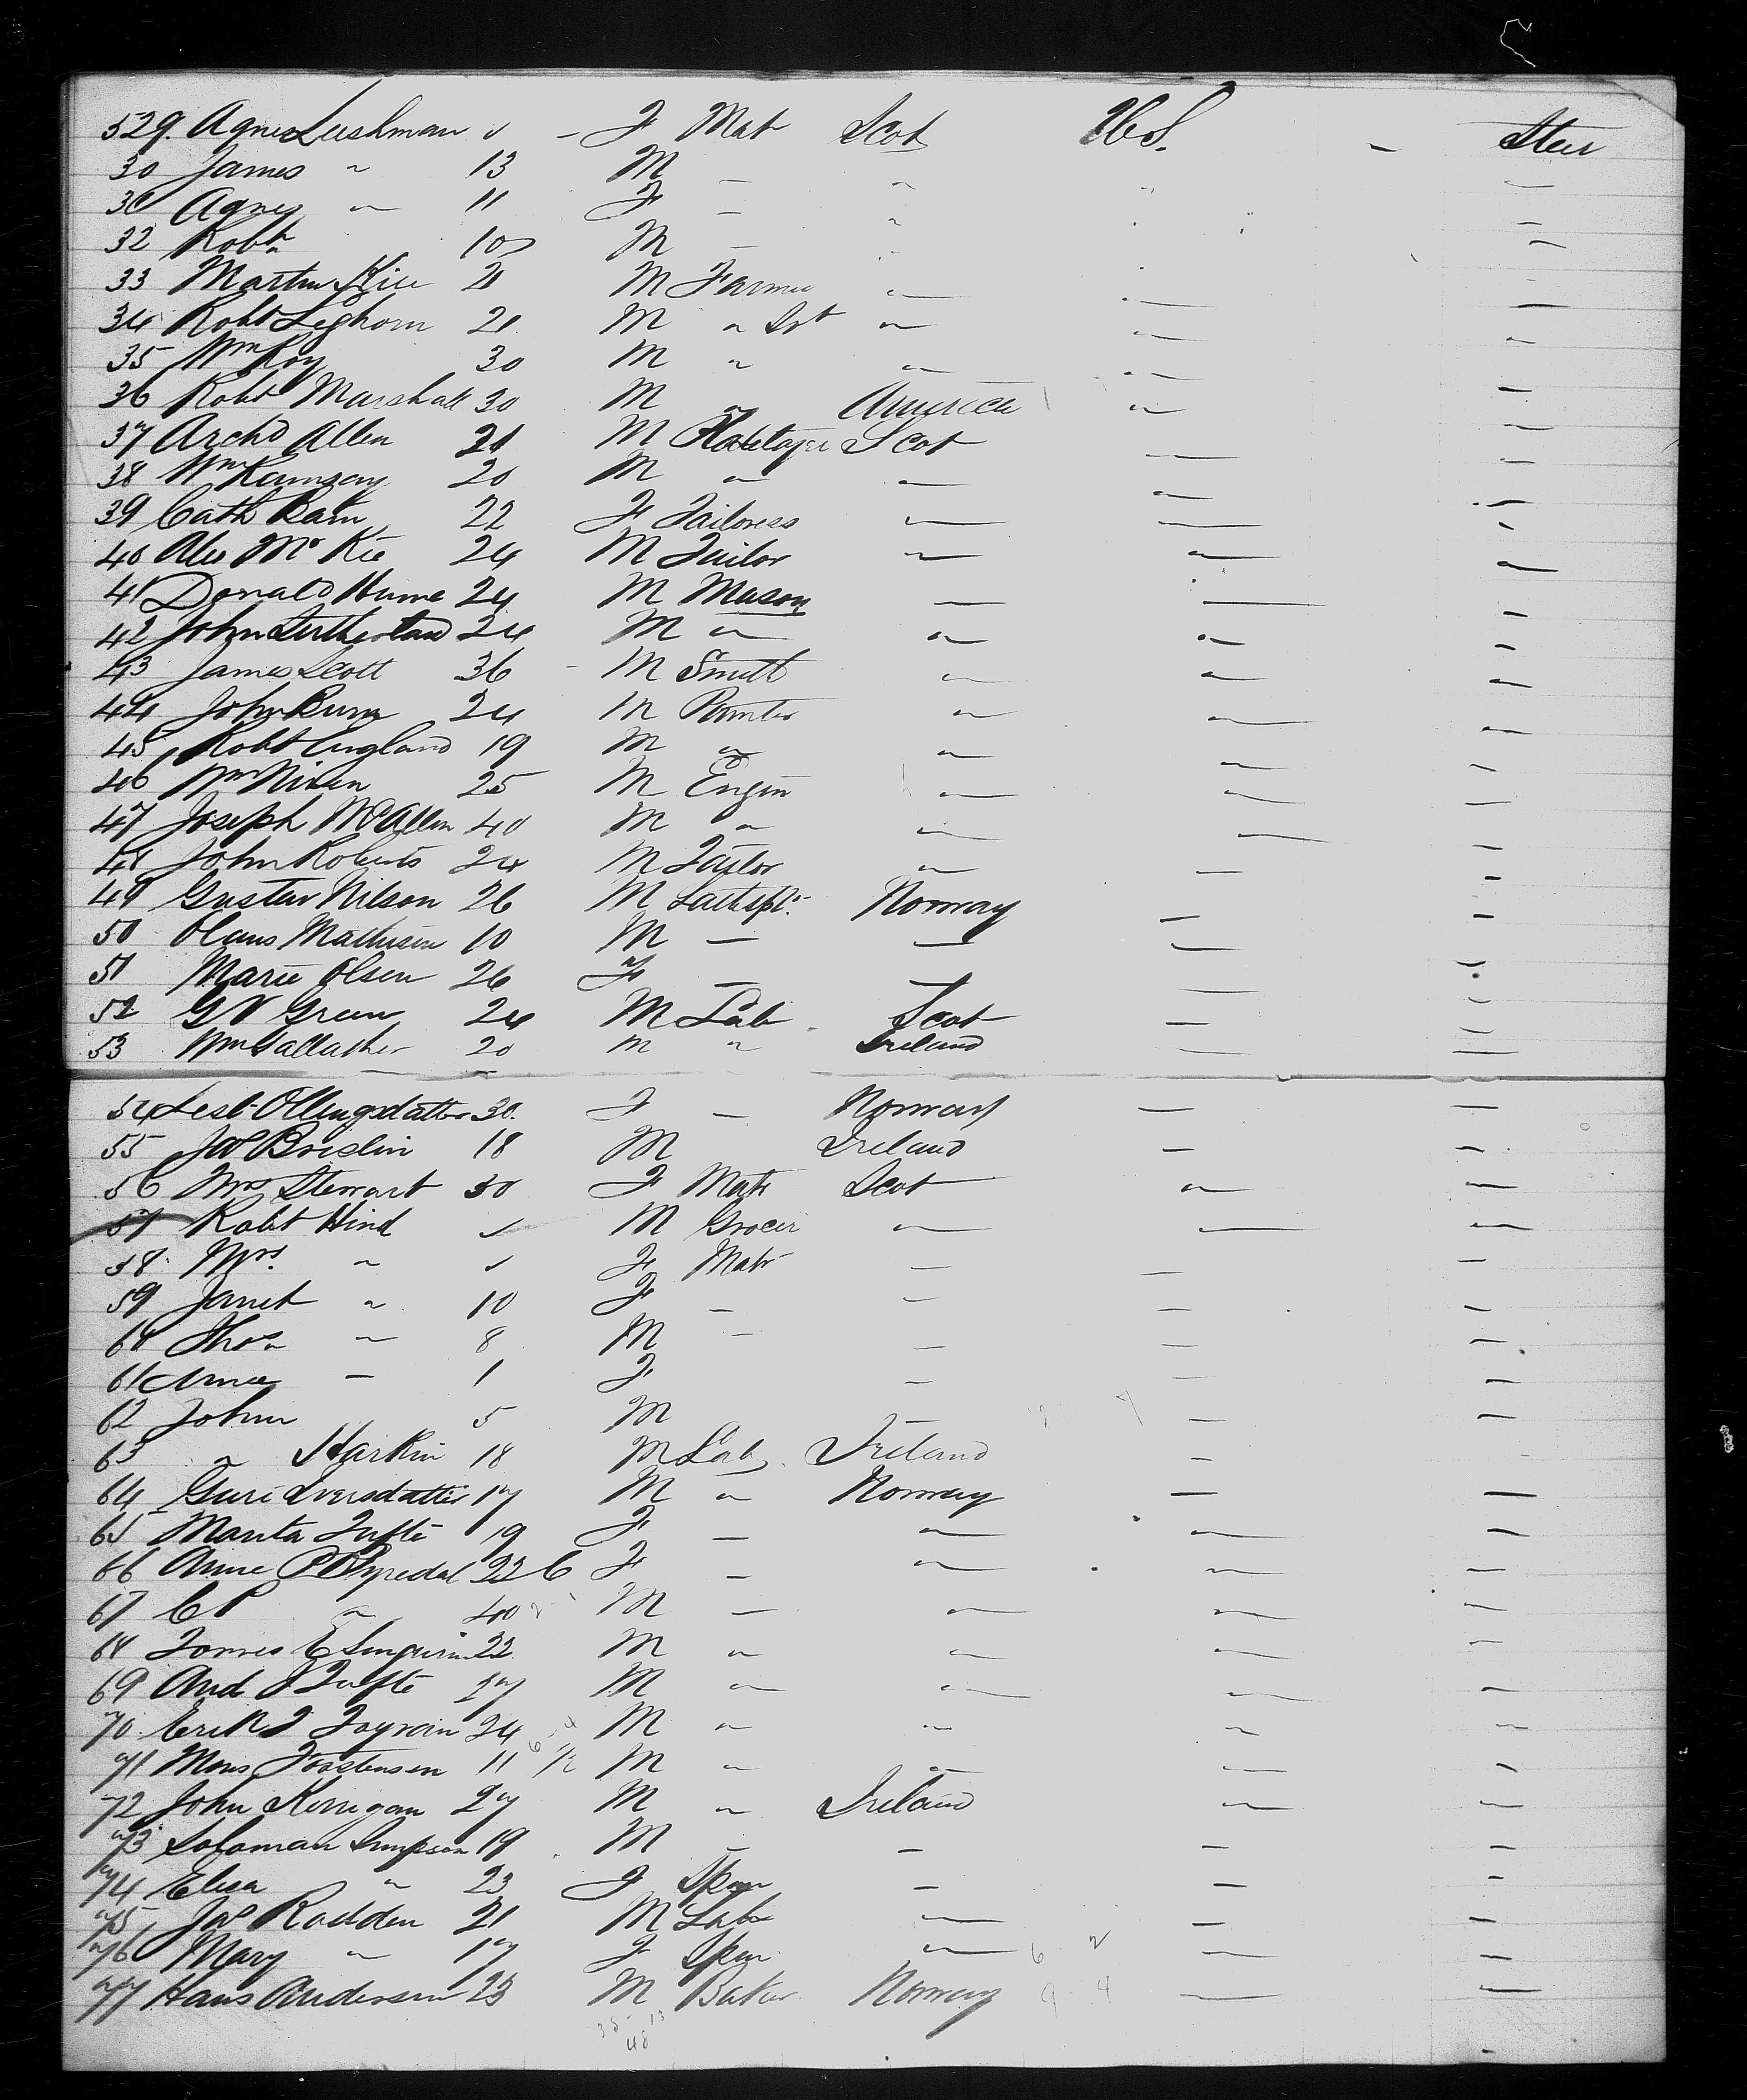 529. Agnes Leishman ✓ - F Mat Scot U.S. - Steer
30 James " 13 M - " " -
31 Agnes " 11 F - " " -
32 Robt " 10 M - " " -
33 Martin 21 M Farmer " — —
34 Robt Leghorn 21 M " " — "
35 Wm Roy 30 M " " — —
36 Robt Marshall 30 M " America " —
37 Archd Allen 21 M Scot — —
38 Wm Ramsay 20 M " " " —
39 Cath Bain 22 F Tailoress — — -
40 Alex McKie 24 M Tailor " " "
41 Donald Hume 24 M Mason — — —
42 John Sutherland 24 M " " " —
43 James Scott 36 - M Smith " " "
44 John 24 M Painter " — —
45 Robt England 19 M " " " —
46 Wm Niven 25 M Engin " " —
47 Joseph McAllen 40 M " " — —
48 John Roberts 24 M Tailor " — -
49 Gustav Nilson 26 M Norway — —
50 Olaus Mathisen 10 M — — — —
51 Marie Olsen 26 F — — — -
52 G V Green 24 M Lab. Scot — —
53 Wm Gallagher 20 M " Ireland — —
54 30. F — Norway — —
55 Jas Breslin 18 M Ireland — —
56 Mrs Stewart 30 F Matr Scot " —
57 Robt Hind ✓ M Grocer " — —
58 Mrs. " ✓ F Matr — — —
59 Janet " 10 F — — — —
60 Thos " 8 M — — — —
61 Annie — 1 F — — —
62 John 5 M — — —
63 " Harkin 18 M Lab. Ireland — —
64 Guri Iversdatter 17 M " Norway — —
65 Marita Tufte 19 F — " — —
66 Anne 22 F — " " —
67 C P " 40 M — " " —
68 22 M " " " —
69 And J Tufte 27 M " " " —
70 Erik 24 M " " " —
71 Mons Torstensen 11 M " " — -
72 John Kerrigan 27 M " Ireland " —
73 Soloman Simpson 19 M — — — —
74 Eliza " 23 F Spin — — -
75 Jas Rodden 21 M Lab — — —
76 Mary " 17 F Spin " — —
77 Hans Anderson 23 M Baker Norway — —